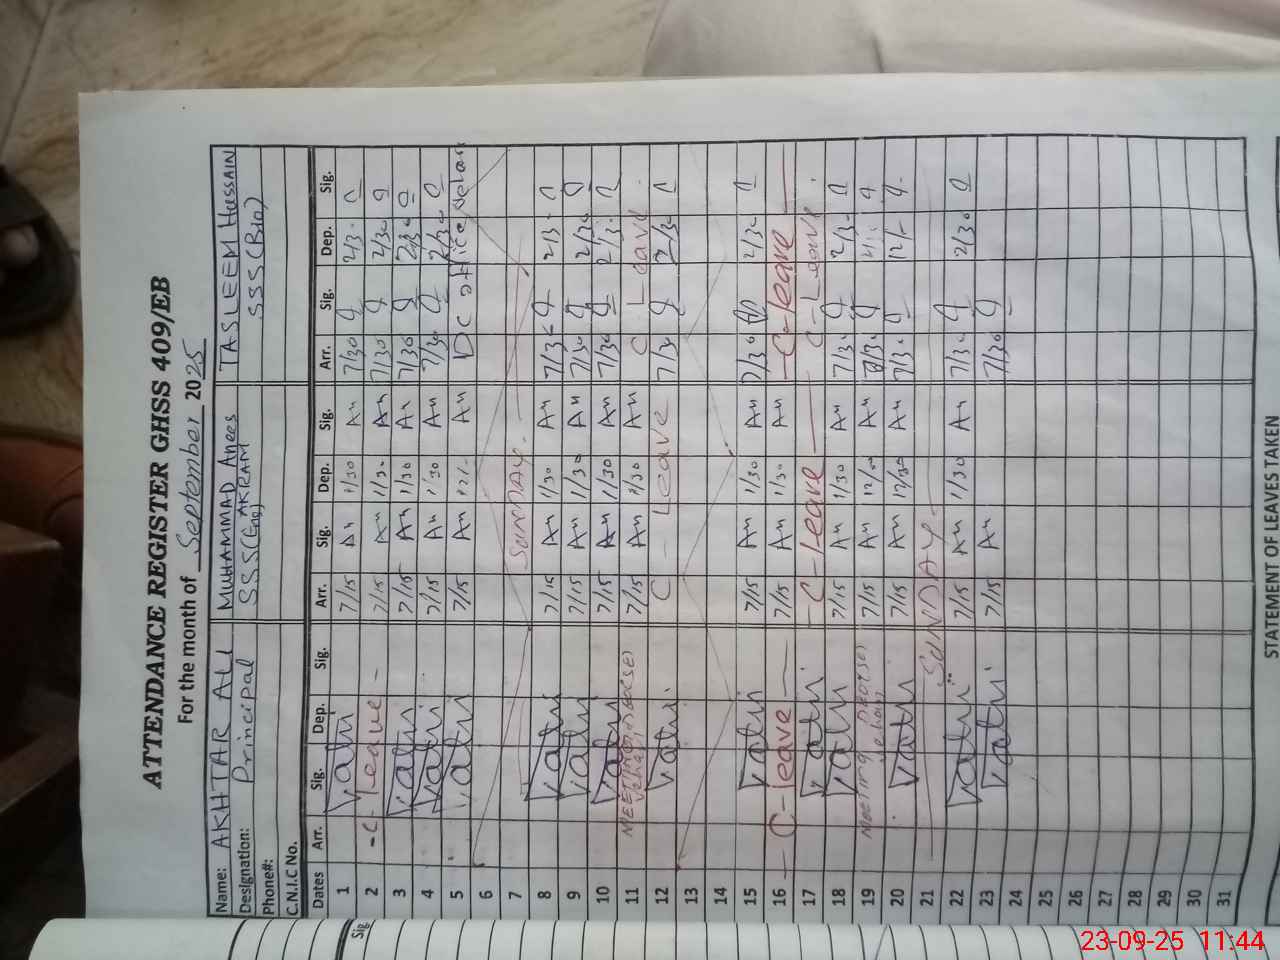 ATTENDANCE REGISTER GHSS 409/EB
For the month of September 2025
Name: AKHTAR ALI MUHAMMAD Anees AKRAM TASLEEM HUSSAIN
Designation: Principal SSS(Eng) SSS(Bio)
Phone#:
C.N.I.C No.
Dates Arr. Sig. Dep. Sig. Arr. Sig. Dep. Sig. Arr. Sig. Dep. Sig.
1 7/15 An 1/30 An 7/30 2/30
2 -C-leave- 7/15 An 1/30 An 7/30 2/30
3 7/15 An 1/30 An 7/30 2/30
4 7/15 An 1/30 An 7/30 2/30
5 7/15 An 12/- An DC office
6
7 SUNDAY
8 7/15 An 1/30 An 7/30 2/30
9 7/15 An 1/30 An 7/30 2/30
10 7/15 An 1/30 An 7/30 2/30
11 MEETING 7/15 An 1/30 An C Leave
12 C - Leave 7/30 2/30
13
14
15 7/15 An 1/30 An 7/30 2/30
16 -C-leave- 7/15 An 1/30 An -C-leave-
17 -C-leave- C-Leave
18 7/15 An 1/30 An 7/30 2/30
19 Meeting 7/15 An 12/00 An 7/30
20 7/15 An 12/30 An 7/30 12/-
21 SUNDAY
22 7/15 An 1/30 An 7/30 2/30
23 7/15 An 7/30
24
25
26
27
28
29
30
31
STATEMENT OF LEAVES TAKEN
Sig
23-09-25 11:44